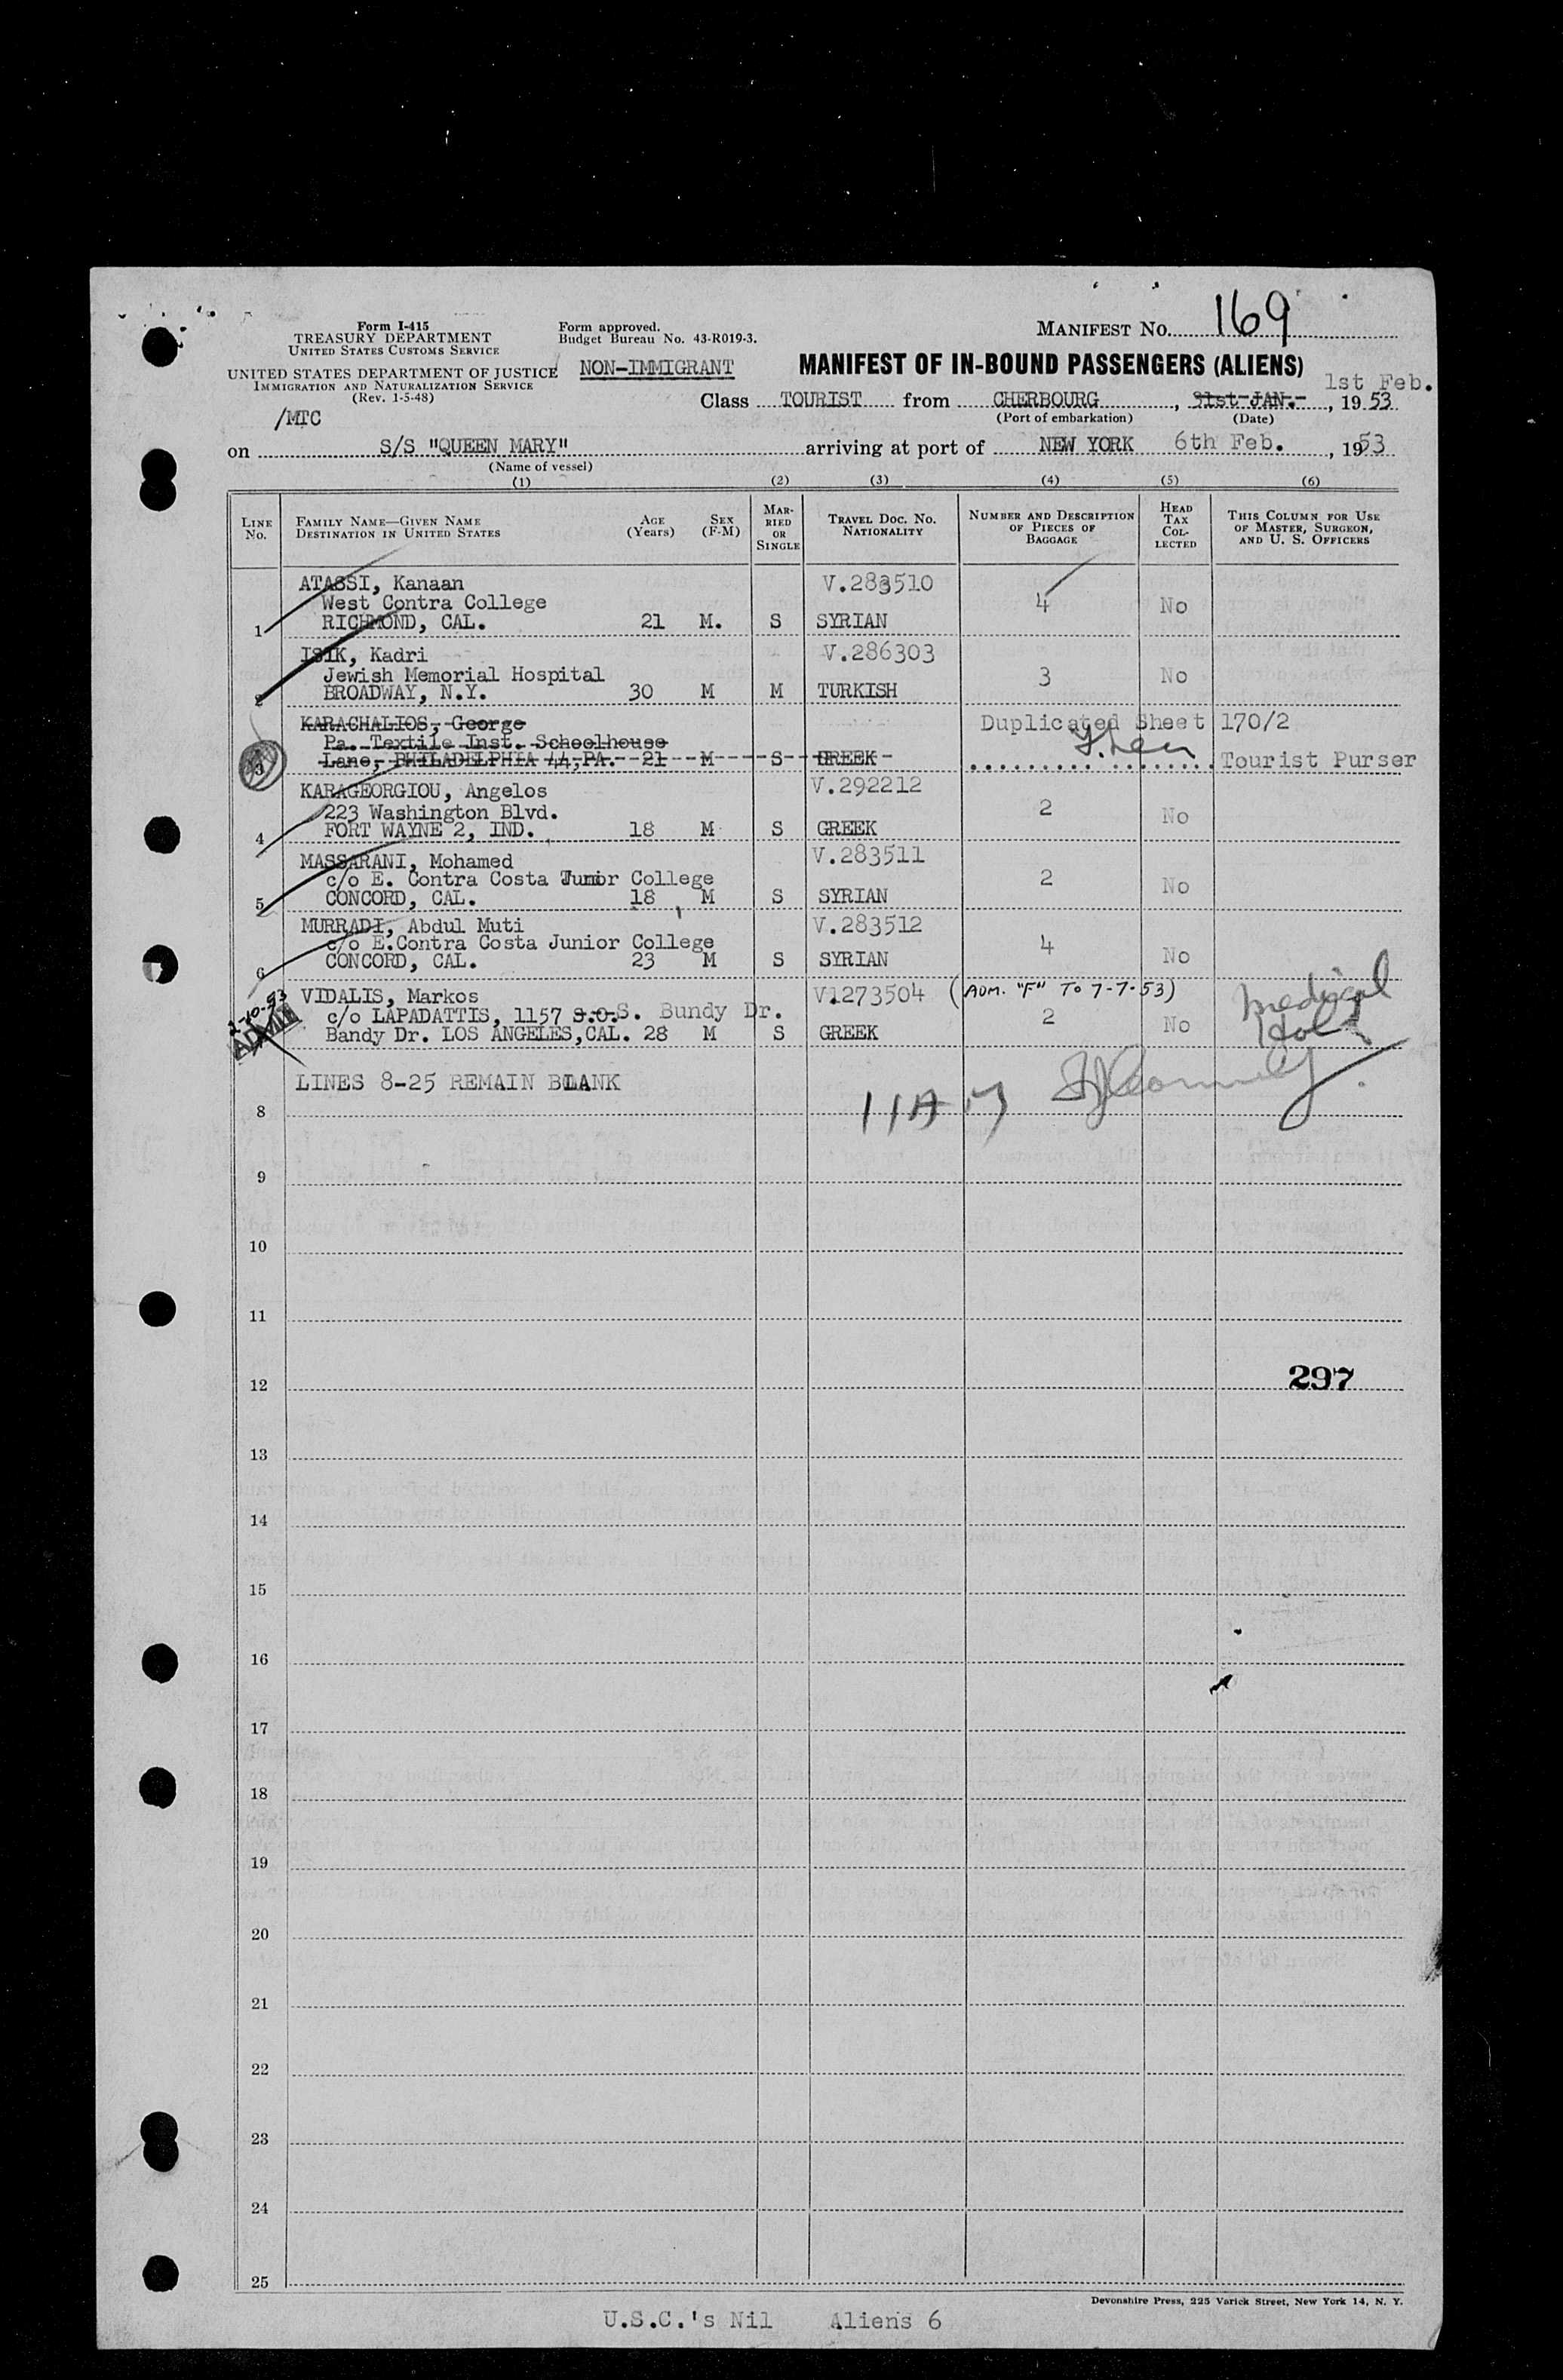 169
Form I-415
TREASURY DEPARTMENT
UNITED STATES CUSTOMS SERVICE
Form approved.
Budget Bureau No. 43-R019-3.
MANIFEST NO.
UNITED STATES DEPARTMENT OF JUSTICE
IMMIGRATION AND NATURALIZATION SERVICE
(Rev. 1-5-48)
NON-IMMIGRANT
MANIFEST OF IN-BOUND PASSENGERS (ALIENS)
1st Feb.
/MTC
Class TOURIST from CHERBOURG, 31st JAN. , 1953
(Port of embarkation) (Date)
on S/S "QUEEN MARY" arriving at port of NEW YORK 6th Feb. , 1953
(Name of vessel)
(1) (2) (3) (4) (5) (6)
LINE No. FAMILY NAME—GIVEN NAME DESTINATION IN UNITED STATES AGE (Years) SEX (F-M) MARRIED OR SINGLE TRAVEL DOC. NO. NATIONALITY NUMBER AND DESCRIPTION OF PIECES OF BAGGAGE HEAD TAX COLLECTED THIS COLUMN FOR USE OF MASTER, SURGEON, AND U. S. OFFICERS
ATASSI, Kanaan V.283510
West Contra College 4 No
1 RICHMOND, CAL. 21 M. S SYRIAN
ISIK, Kadri V.286303
Jewish Memorial Hospital 3 No
2 BROADWAY, N.Y. 30 M M TURKISH
KARACHALIOS, George Duplicated Sheet 170/2
Pa. Textile Inst. Schoolhouse
3 Lane, PHILADELPHIA 44, PA. 21 M S GREEK Tourist Purser
KARAGEORGIOU, Angelos V.292212
223 Washington Blvd. 2 No
4 FORT WAYNE 2, IND. 18 M S GREEK
MASSARANI, Mohamed V.283511
c/o E. Contra Costa Junior College 2 No
5 CONCORD, CAL. 18 M S SYRIAN
MURRADI, Abdul Muti V.283512
c/o E.Contra Costa Junior College 4 No
6 CONCORD, CAL. 23 M S SYRIAN
2-10-53 VIDALIS, Markos V1273504 (ADM. "F" TO 7-7-53) Medical
c/o LAPADATTIS, 1157 S.O.S. Bundy Dr. 2 No
Bandy Dr. LOS ANGELES, CAL. 28 M S GREEK
LINES 8-25 REMAIN BLANK
8
9
10
11
12 297
13
14
15
16
17
18
19
20
21
22
23
24
25
Devonshire Press, 225 Varick Street, New York 14, N. Y.
U.S.C.'s Nil Aliens 6